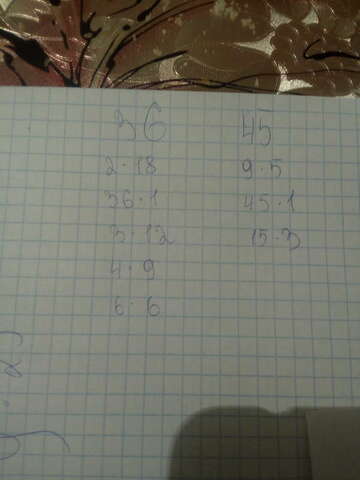 36 45
2·18 9·5
36·1 45·1
3·12 15·3
4·9
6·6